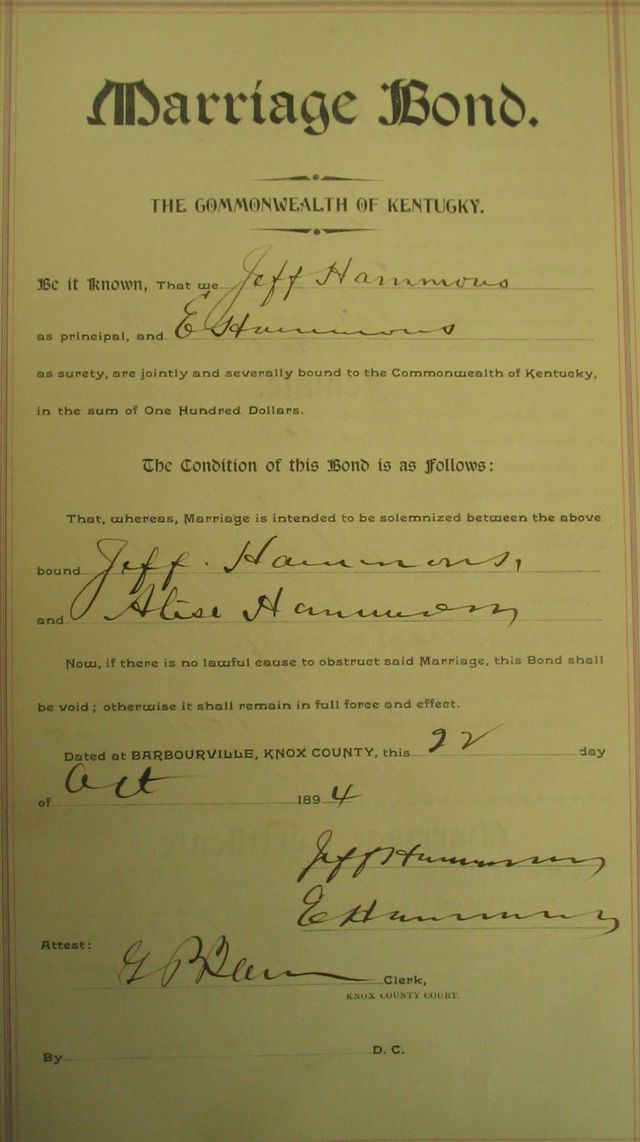 Marriage Bond.
THE COMMONWEALTH OF KENTUCKY.
Be it Known, That we Jeff Hammons
as principal, and E Hammons
as surety, are jointly and severally bound to the Commonwealth of Kentucky,
in the sum of One Hundred Dollars.
The Condition of this Bond is as Follows:
That, whereas, Marriage is intended to be solemnized between the above
bound Jeff. Hammons,
and Alise Hammons
Now, if there is no lawful cause to obstruct said Marriage, this Bond shall
be void; otherwise it shall remain in full force and effect.
Dated at BARBOURVILLE, KNOX COUNTY, this 22 day
of Oct 1894
Jeff Hammons
E Hammons
Attest:
Clerk,
KNOX COUNTY COURT.
By D. C.